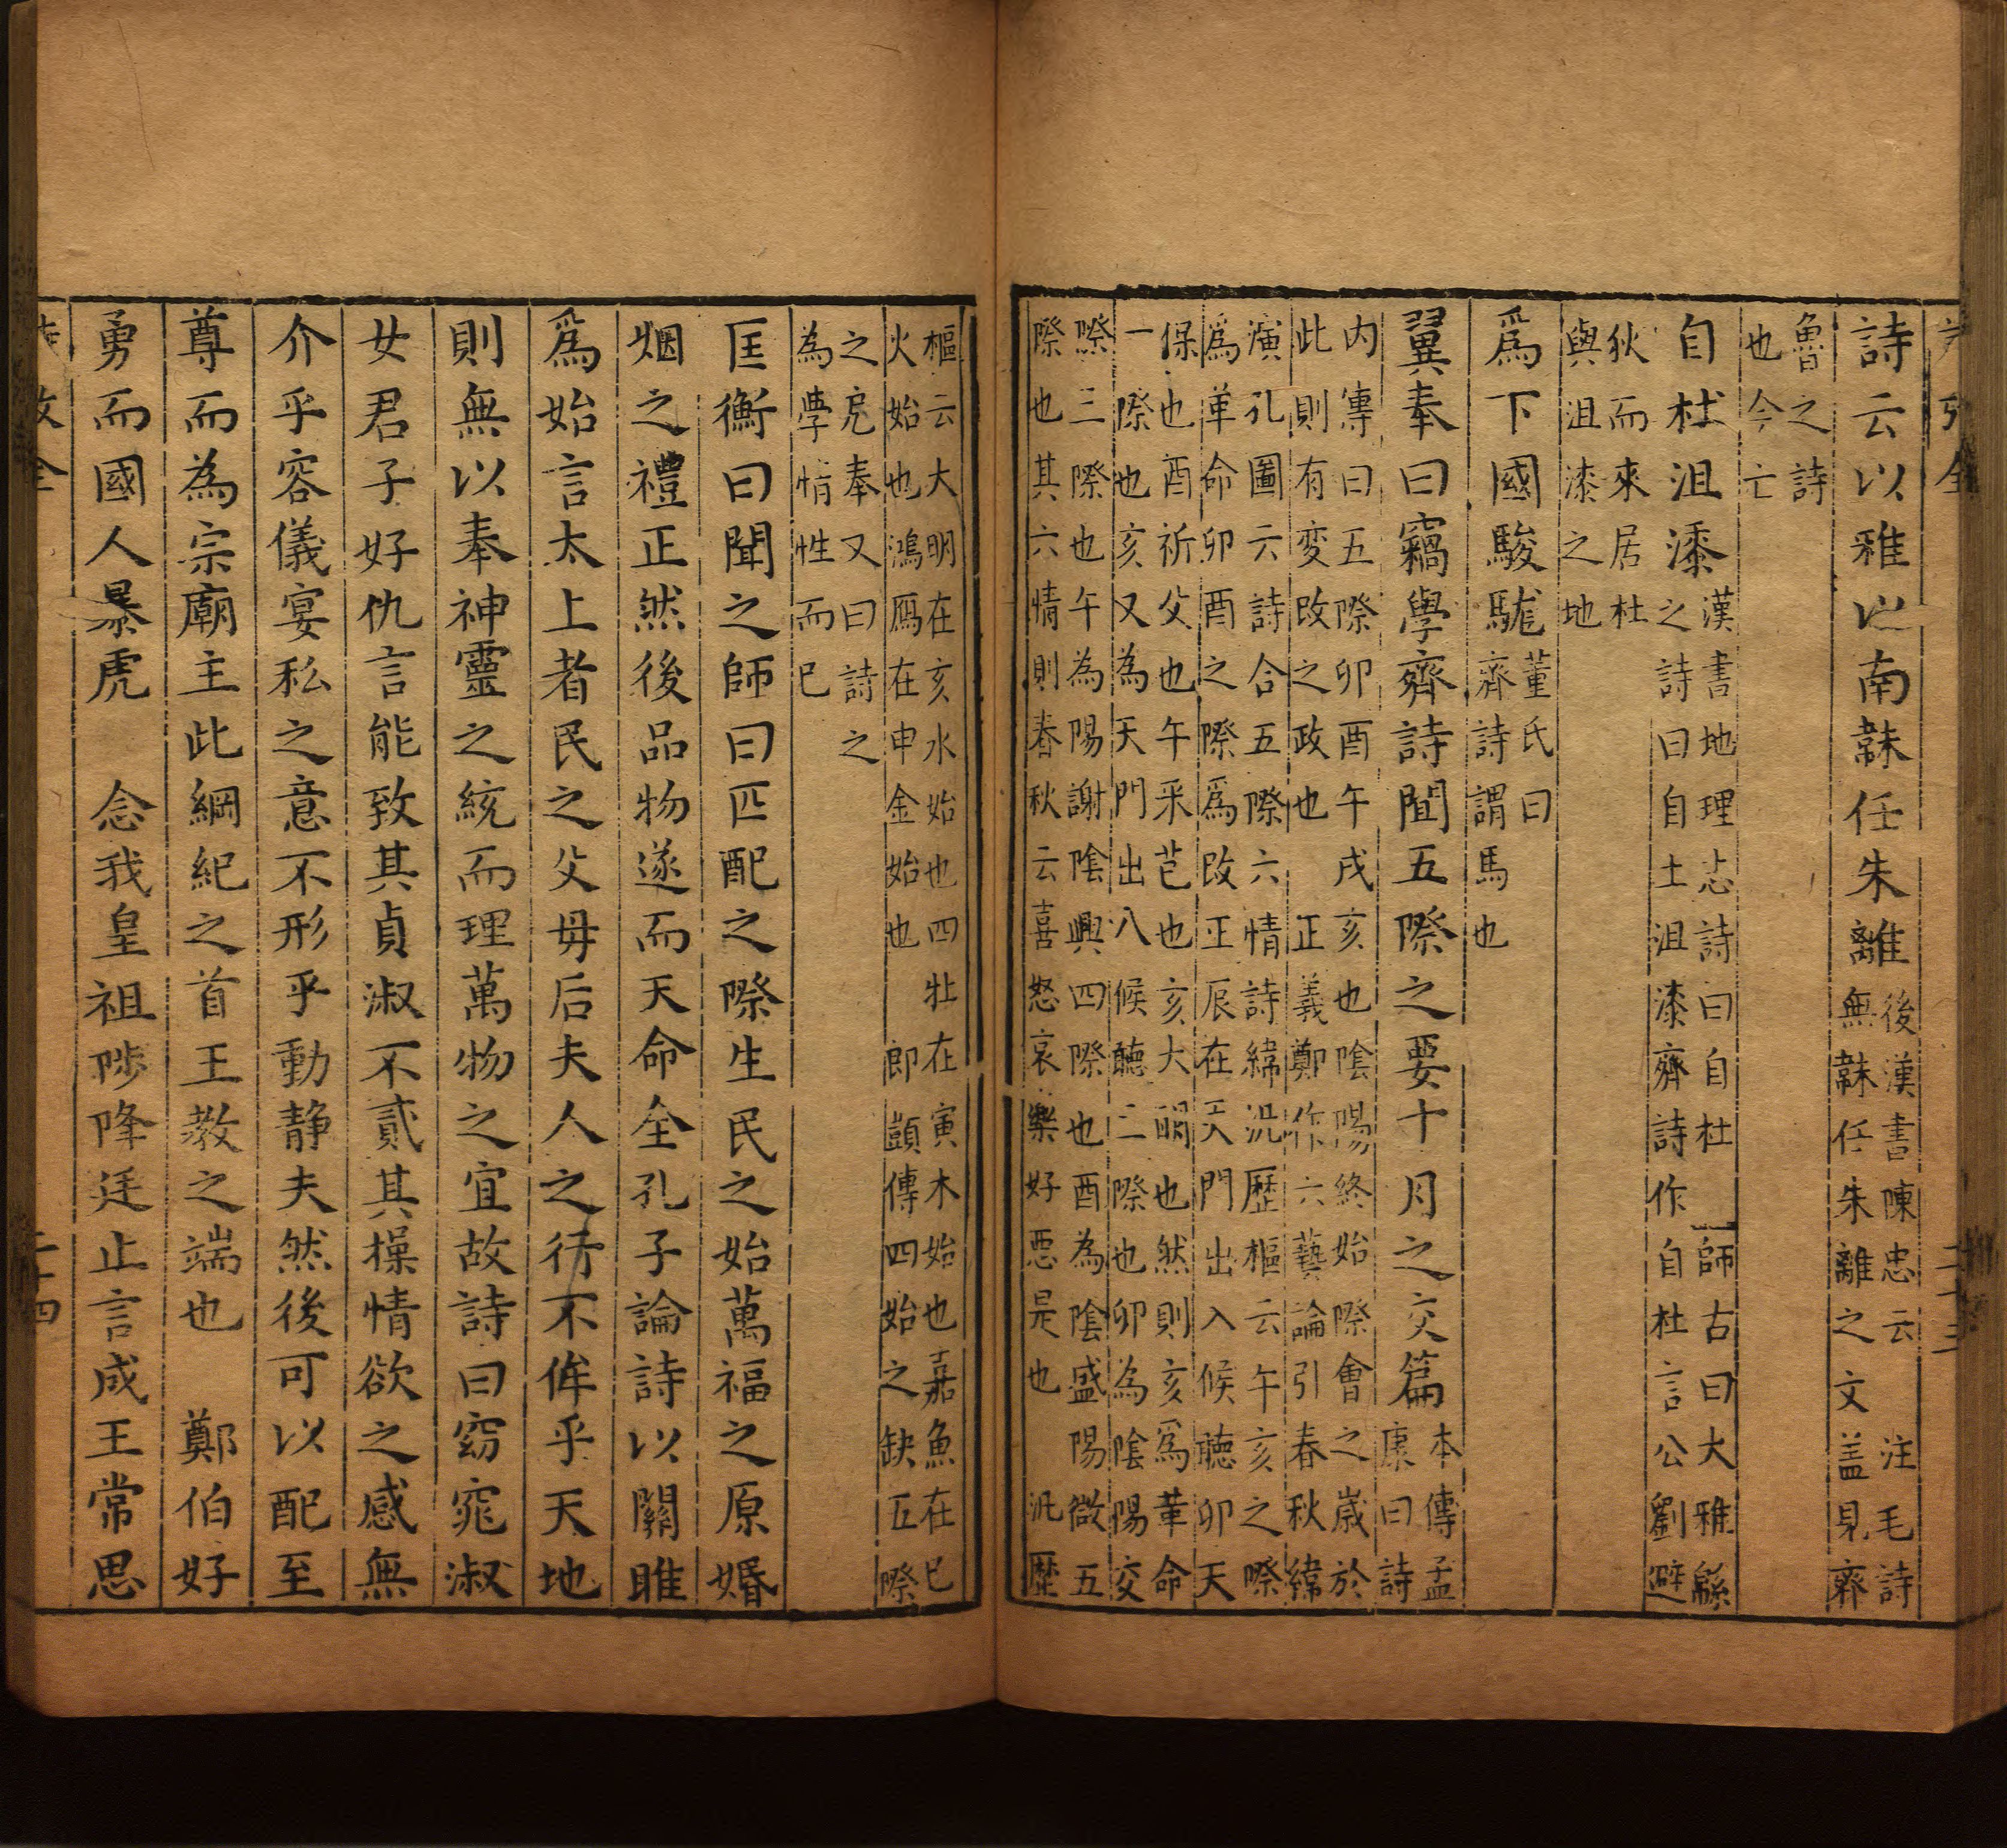 詩云以雅以南韎任朱離
後漢書陳忠云 注毛詩
無韎任朱離之文盖見齊
魯之詩
也今亡
自杜沮漆
漢書地理志詩曰自杜 師古曰大雅緜
之詩曰自土沮漆齊詩作自杜言公劉避
狄而來居杜
與沮漆之地
爲下國駿駹
董氏曰
齊詩謂馬也
翼奉曰竊學齊詩聞五際之要十月之交篇
本傳孟
康曰詩
内傳曰五際卯酉午戌亥也陰陽終始際會之歲於
此則有変改之政也 正義鄭作六藝論引春秋緯
演孔圖云詩含五際六情詩緯汎歷樞云午亥之際
爲革命卯酉之際爲改正辰在天門出入候聽卯天
保也酉祈父也午采芑也亥大明也然則亥爲革命
一際也亥又為天門出入候聽二際也卯為陰陽交
際三際也午為陽謝陰興四際也酉為陰盛陽微五
際也其六情則春秋云喜怒哀樂好惡是也 汎歷
樞云大明在亥水始也四牡在寅木始也嘉魚在巳
火始也鴻鴈在申金始也 郎顗傳四始之缺五際
之戹奉又曰詩之
為學情性而已
匡衡曰聞之師曰匹配之際生民之始萬福之原婚
姻之禮正然後品物遂而天命全孔子論詩以關雎
爲始言太上者民之父母后夫人之行不侔乎天地
則無以奉神靈之統而理萬物之宜故詩曰窈窕淑
女君子好仇言能致其貞淑不貳其操情欲之感無
介乎容儀宴私之意不形乎動静夫然後可以配至
尊而為宗廟主此綱紀之首王教之端也 鄭伯好
勇而國人暴虎 念我皇祖陟降廷止言成王常思